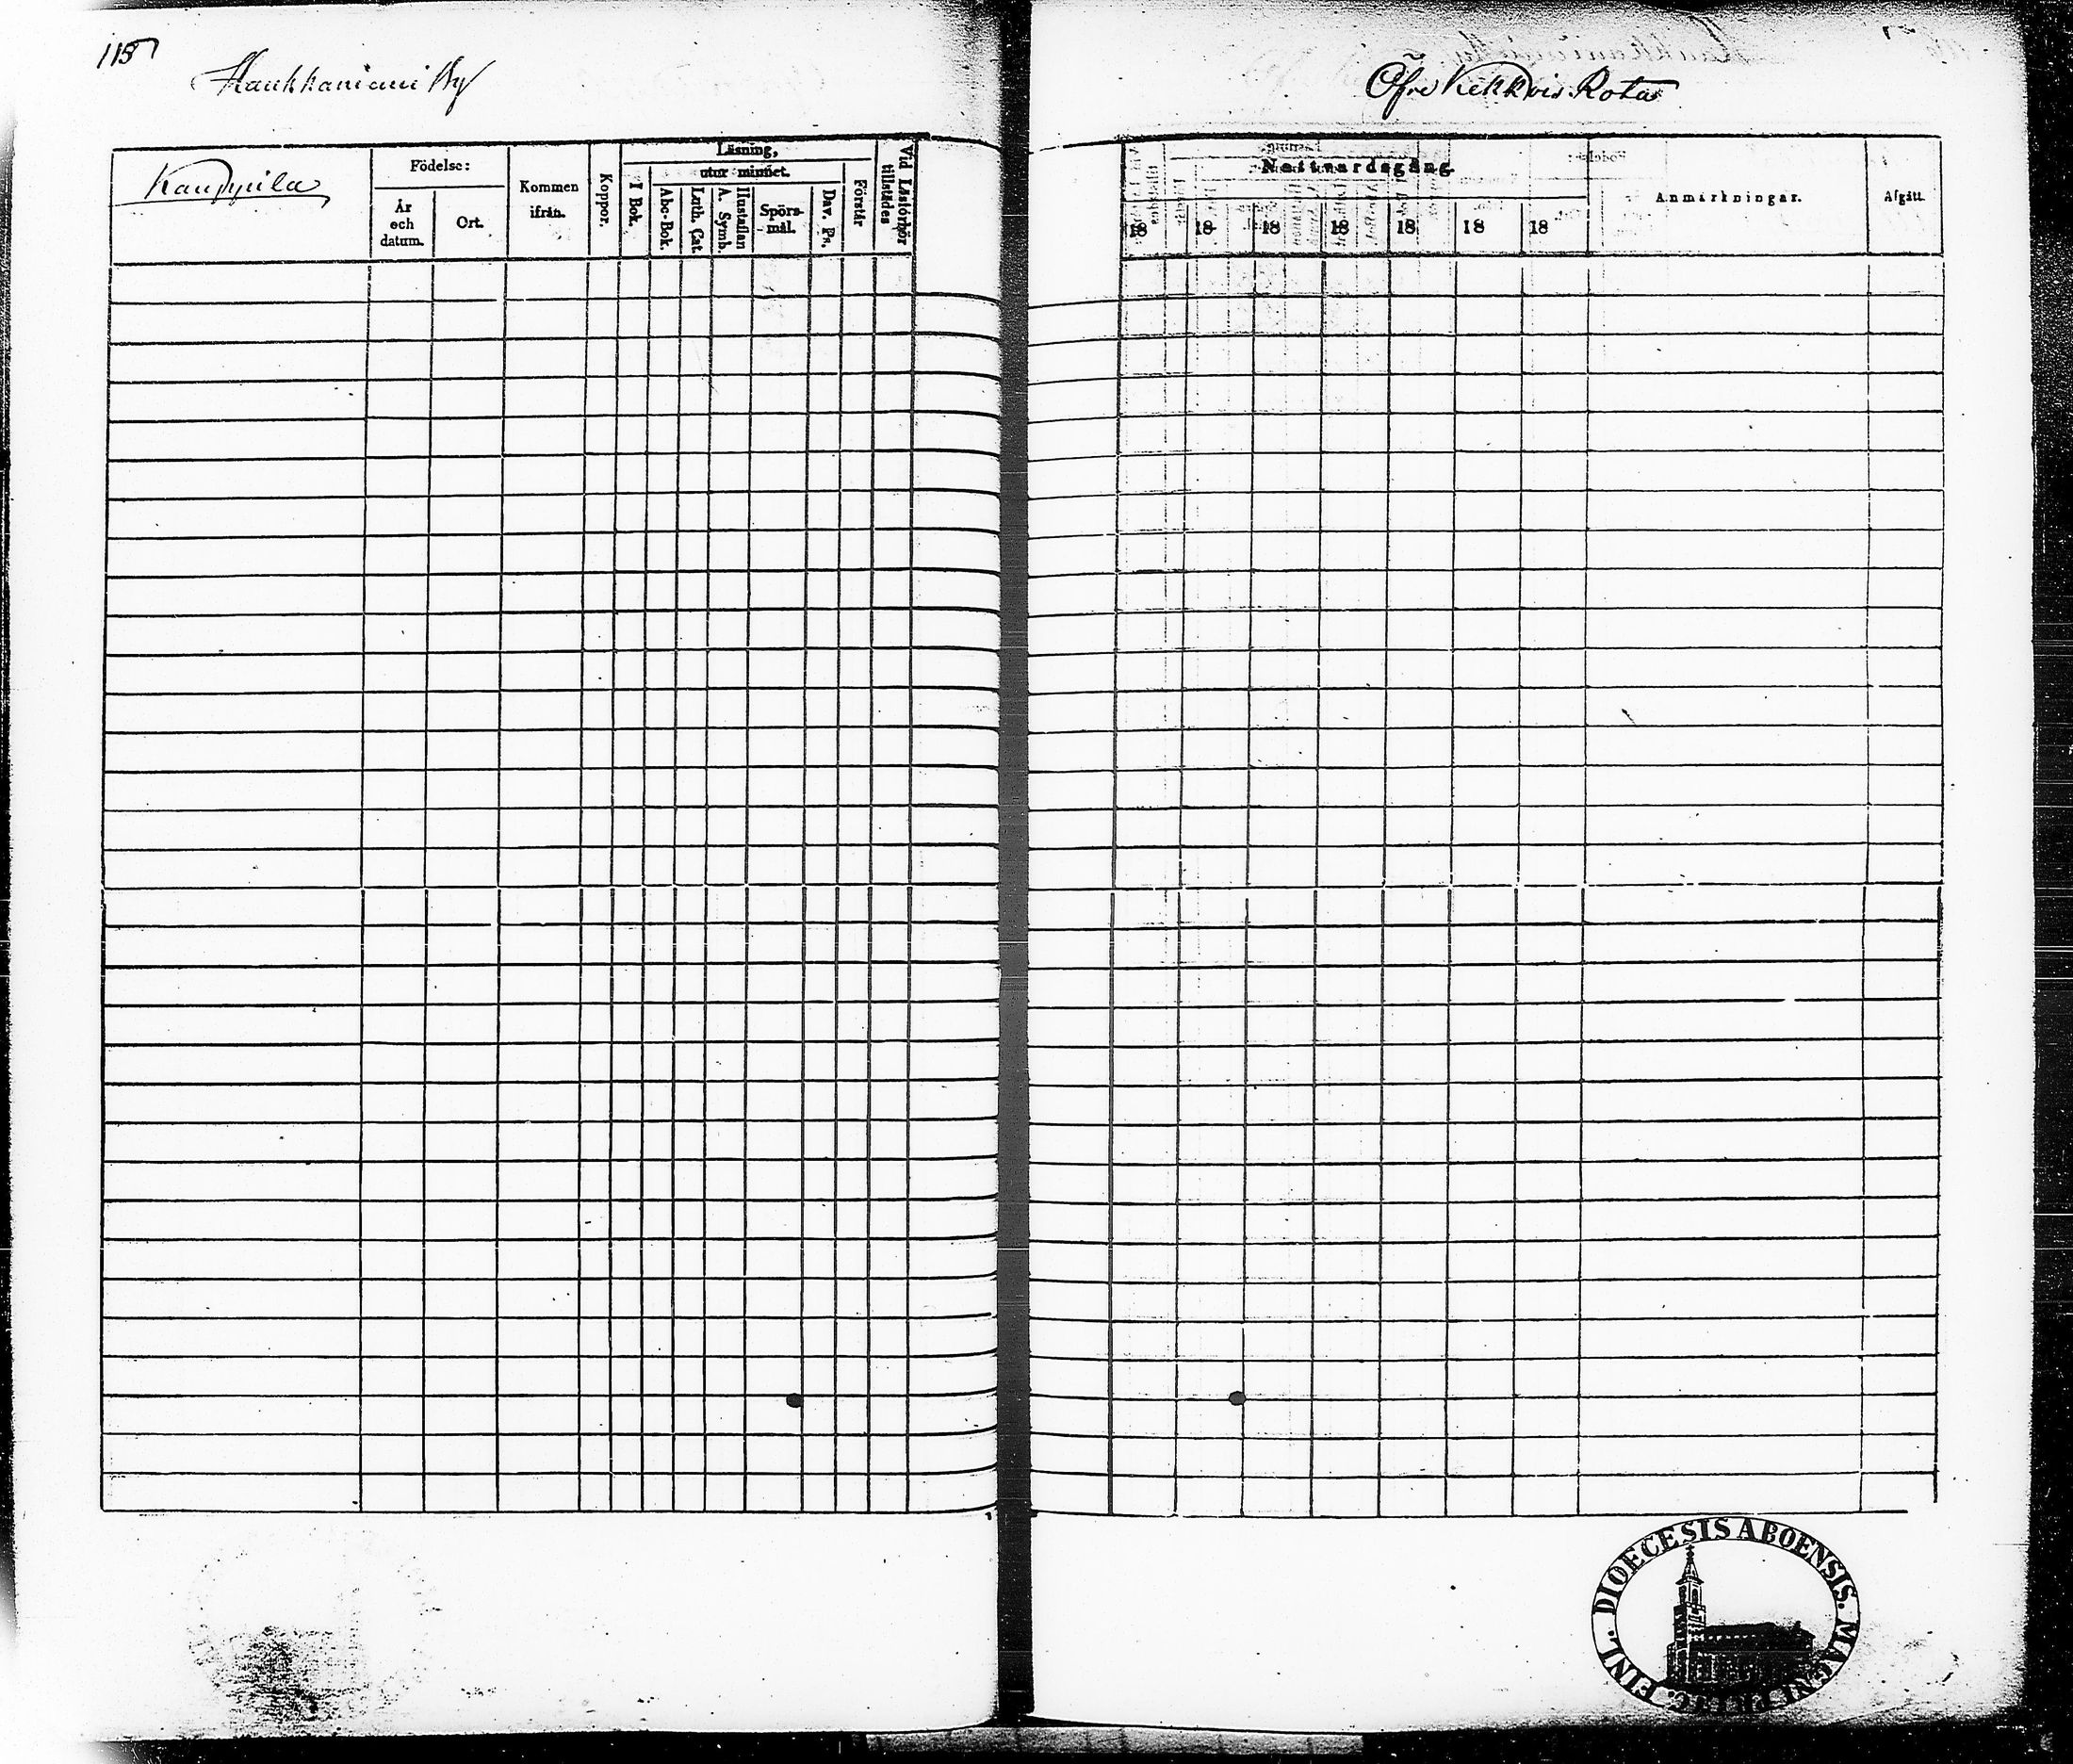 115
Haukkaniemi By
Öfre Kekkois Rota
Kauppila
Födelse:
År och datum.
Ort.
Kommen ifrån.
Koppor.
Läsning,
I Bok.
utur minnet.
Abc-Bok.
Luth. Cat.
A. Symb. Hustaflan
Spörs-mål.
Dav. Ps.
Förstår
Vid Läsförhör tillstädes
Nattvardsgång.
18 18 18 18 18 18 18
Anmärkningar.
Afgått.
DIOECESIS ABOENSIS. MAGNI PR:C. FINL.